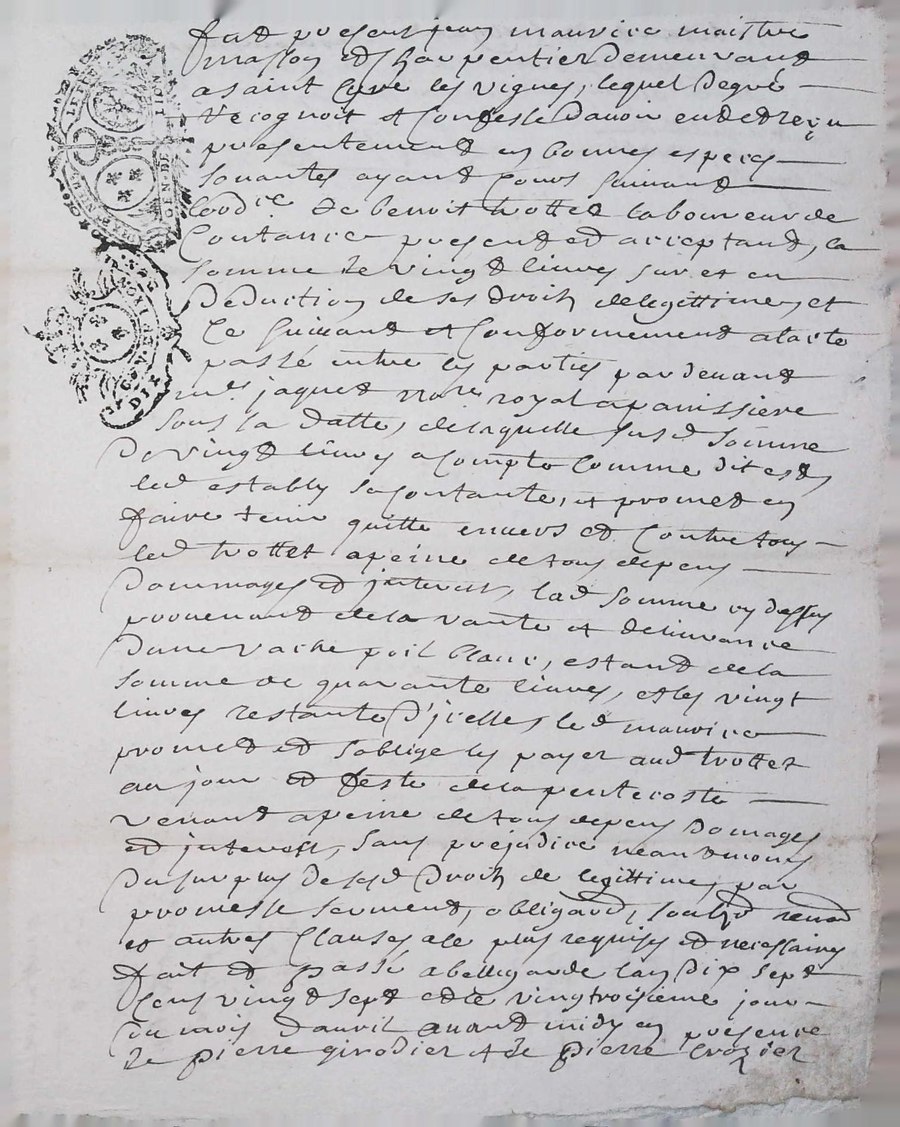 fut present jean maurice maistre
masson et charpentier demeurant
a saint Cire les vignes, lequel de gré
recognoit et confesse d'avoir eu et receu
presentement en bonnes especes
sonantes ayant cours suivant
de benoit trottet laboureur de
present et acceptant, la
somme de vingt livres sur et en
deduction de ses droits de legittimes, et
ce suivant et conformement a lacte
passé entre les parties par devant
me jaquet nore royal a panissiere
sous sa datte, de laquelle susd somme
de vingt livres a compte comme dit est
led estably se contante, et promet en
faire tenir quitte envers et contre tous
led trottet a peine de tous depens
dommages et interest, lad somme cy dessus
provenant de la vante et delivrance
dune vache poil blanc, estant de la
somme de quarante livres, et les vingt
livres restante d'jcelles, led maurice
promet et soblige les payer aud trottet
au jour et feste de la pentecoste
venant a peine de tous depens domages
et jnterest, sans prejudice neantmoins
du surplus de sesd droits de legittimes, par
promesse serment, obligaon, renon
et autres clauses a ce plus requises et necessaires
fait et passé a bellegarde lan dix sept
cens vingt sept et le vingtroisieme jour
du mois d'avril avant midy en presence
de pierre girodier et de pierre crozier